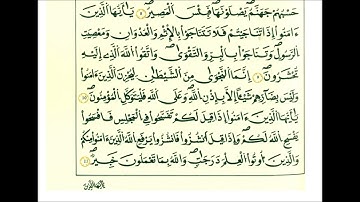 حَسْبُهُمْ جَهَنَّمُ يَصْلَوْنَهَا فَبِئْسَ ٱلْمَصِيرُ ٨ يَٰٓأَيُّهَا ٱلَّذِينَ
ءَامَنُوٓا۟ إِذَا تَنَٰجَيْتُمْ فَلَا تَتَنَٰجَوْا۟ بِٱلْإِثْمِ وَٱلْعُدْوَٰنِ وَمَعْصِيَتِ
ٱلرَّسُولِ وَتَنَٰجَوْا۟ بِٱلْبِرِّ وَٱلتَّقْوَىٰ وَٱتَّقُوا۟ ٱللَّهَ ٱلَّذِىٓ إِلَيْهِ
تُحْشَرُونَ ٩ إِنَّمَا ٱلنَّجْوَىٰ مِنَ ٱلشَّيْطَٰنِ لِيَحْزُنَ ٱلَّذِينَ ءَامَنُوا۟
وَلَيْسَ بِضَآرِّهِمْ شَيْـًٔا إِلَّا بِإِذْنِ ٱللَّهِ وَعَلَى ٱللَّهِ فَلْيَتَوَكَّلِ ٱلْمُؤْمِنُونَ ١٠
يَٰٓأَيُّهَا ٱلَّذِينَ ءَامَنُوٓا۟ إِذَا قِيلَ لَكُمْ تَفَسَّحُوا۟ فِى ٱلْمَجَٰلِسِ فَٱفْسَحُوا۟
يَفْسَحِ ٱللَّهُ لَكُمْ وَإِذَا قِيلَ ٱنشُزُوا۟ فَٱنشُزُوا۟ يَرْفَعِ ٱللَّهُ ٱلَّذِينَ ءَامَنُوا۟ مِنكُمْ
وَٱلَّذِينَ أُوتُوا۟ ٱلْعِلْمَ دَرَجَٰتٍ وَٱللَّهُ بِمَا تَعْمَلُونَ خَبِيرٌ ١١
يَٰٓأَيُّهَا ٱلَّذِينَ